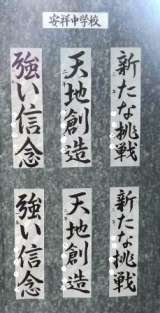 安祥中学校
新たな挑戦
天地創造
強い信念
新たな挑戦
天地創造
強い信念